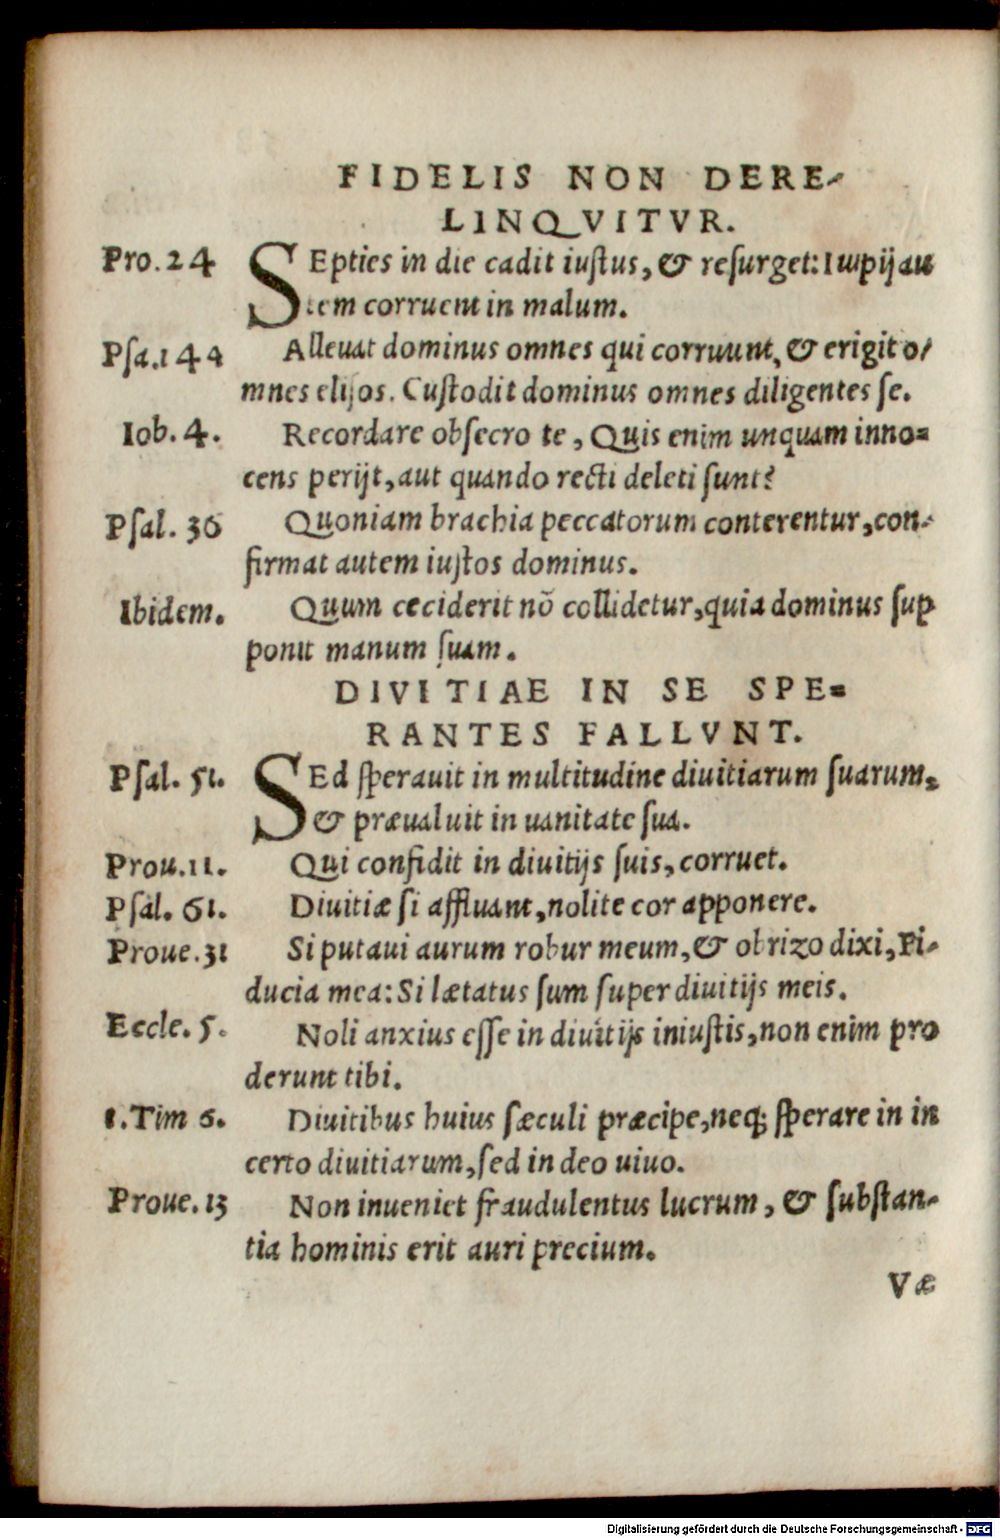 FIDELIS NON DERE-
LINQVITVR.
Pro. 24 SEpties in die cadit iustus, & resurget: Impij au
tem corruent in malum.
Psa. 144 Alleuat dominus omnes qui corruunt, & erigit o/
mnes elisos. Custodit dominus omnes diligentes se.
Iob. 4. Recordare obsecro te, Quis enim unquam inno=
cens perijt, aut quando recti deleti sunt?
Psal. 36 Quoniam brachia peccatorum conterentur, con-
firmat autem iustos dominus.
Ibidem. Quum ceciderit nõ collidetur, quia dominus sup
ponit manum suam.
DIVITIAE IN SE SPE=
RANTES FALLVNT.
Psal. 51. SEd sperauit in multitudine diuitiarum suarum,
& præualuit in uanitate sua.
Prou. 11. Qui confidit in diuitijs suis, corruet.
Psal. 61. Diuitiæ si affluant, nolite cor apponere.
Proue. 31 Si putaui aurum robur meum, & obrizo dixi, Fi-
ducia mea: Si lætatus sum super diuitijs meis.
Eccle. 5. Noli anxius esse in diuitijs iniustis, non enim pro
derunt tibi.
1. Tim 6. Diuitibus huius sæculi præcipe, neq; sperare in in
certo diuitiarum, sed in deo uiuo.
Proue. 13 Non inueniet fraudulentus lucrum, & substan-
tia hominis erit auri precium.
Væ
Digitalisierung gefördert durch die Deutsche Forschungsgemeinschaft - DFG